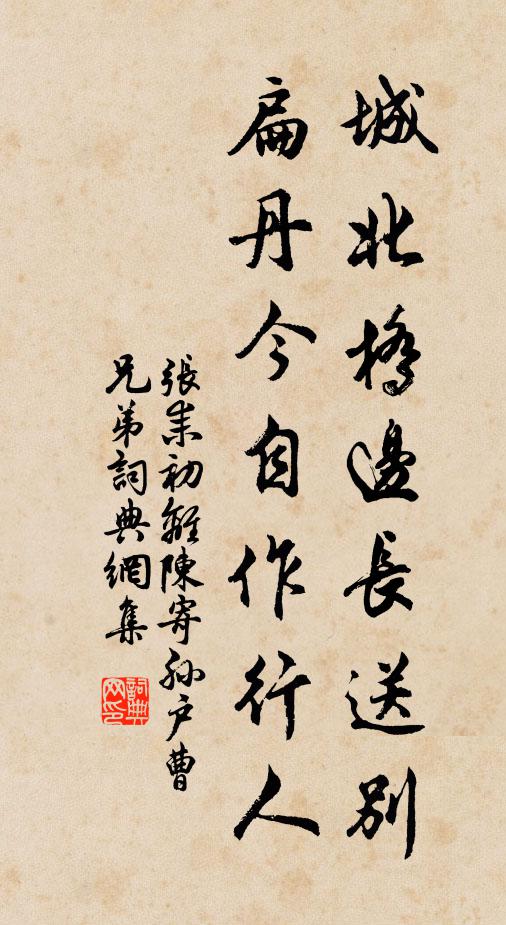 城北橋邊長送別
扁丹今自作行人
張耒初離陳寄孫戶曹
兄弟詞典網集
詞典
网印